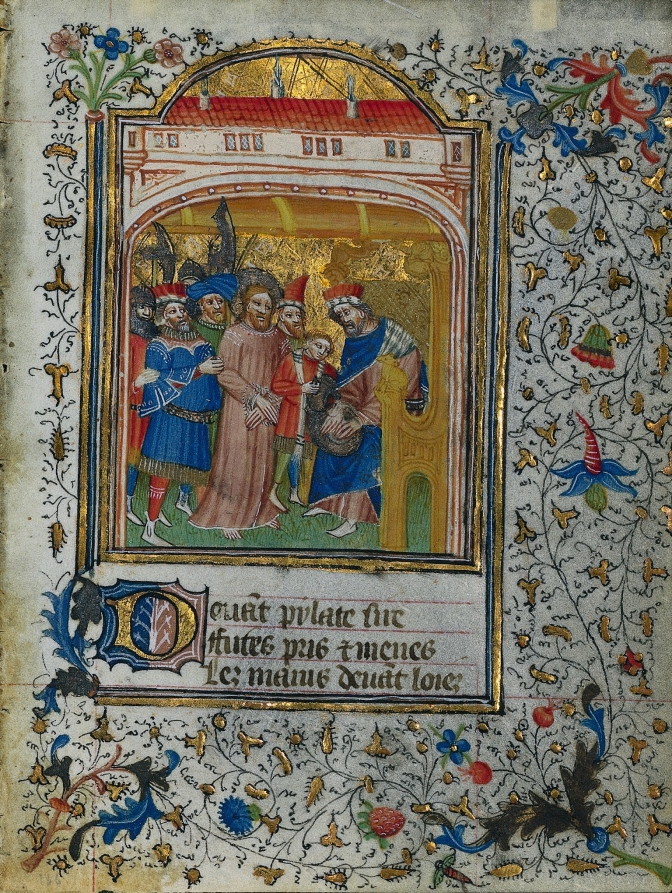 Deuāt pylate sire
ffutes pris ⁊ menes
Lez mains deuāt loiez